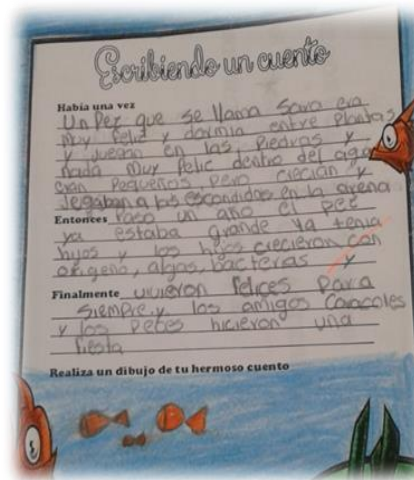 Escribiendo un cuento
Había una vez
Un Pez que se llama Sara era
muy feliz y dormia entre Plantas
y juegan en las Piedras y
nada muy felic dentro del agua
eran Pequeños pero crecian y
Jegaban a los escondidos en la arena
Entonces Paso un año el pez
ya estaba grande ya tenia
hijos y los hijos crecieron con
oxigeno, algas, bacterias y
Finalmente vivieron felices para
siempre y los amigos Caracoles
y los peces hicieron una
fiesta
Realiza un dibujo de tu hermoso cuento